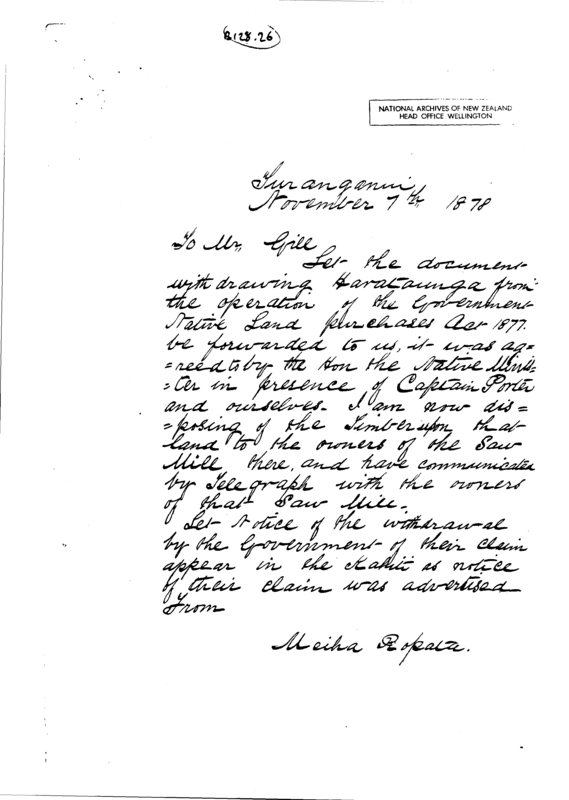 B128.26
NATIONAL ARCHIVES OF NEW ZEALAND
HEAD OFFICE WELLINGTON
Turanganui
November 7th, 1878
To Mr. Gill
Let the document
withdrawing Harataunga from
the operation of the Government
Native Land purchases Act 1877.
be forwarded to us, it was ag=
=reed to by the Hon the Native Minis=
=ter in presence of Captain Porter
and ourselves. I am now dis=
=posing of the Timber upon that
land to the owners of the Saw
Mill there, and have communicated
by Telegraph with the owners
of that Saw Mill.
Let Notice of the withdrawal
by the Government of their claim
appear in the Kahiti as notice
of their claim was advertised
From
Meiha Ropata.